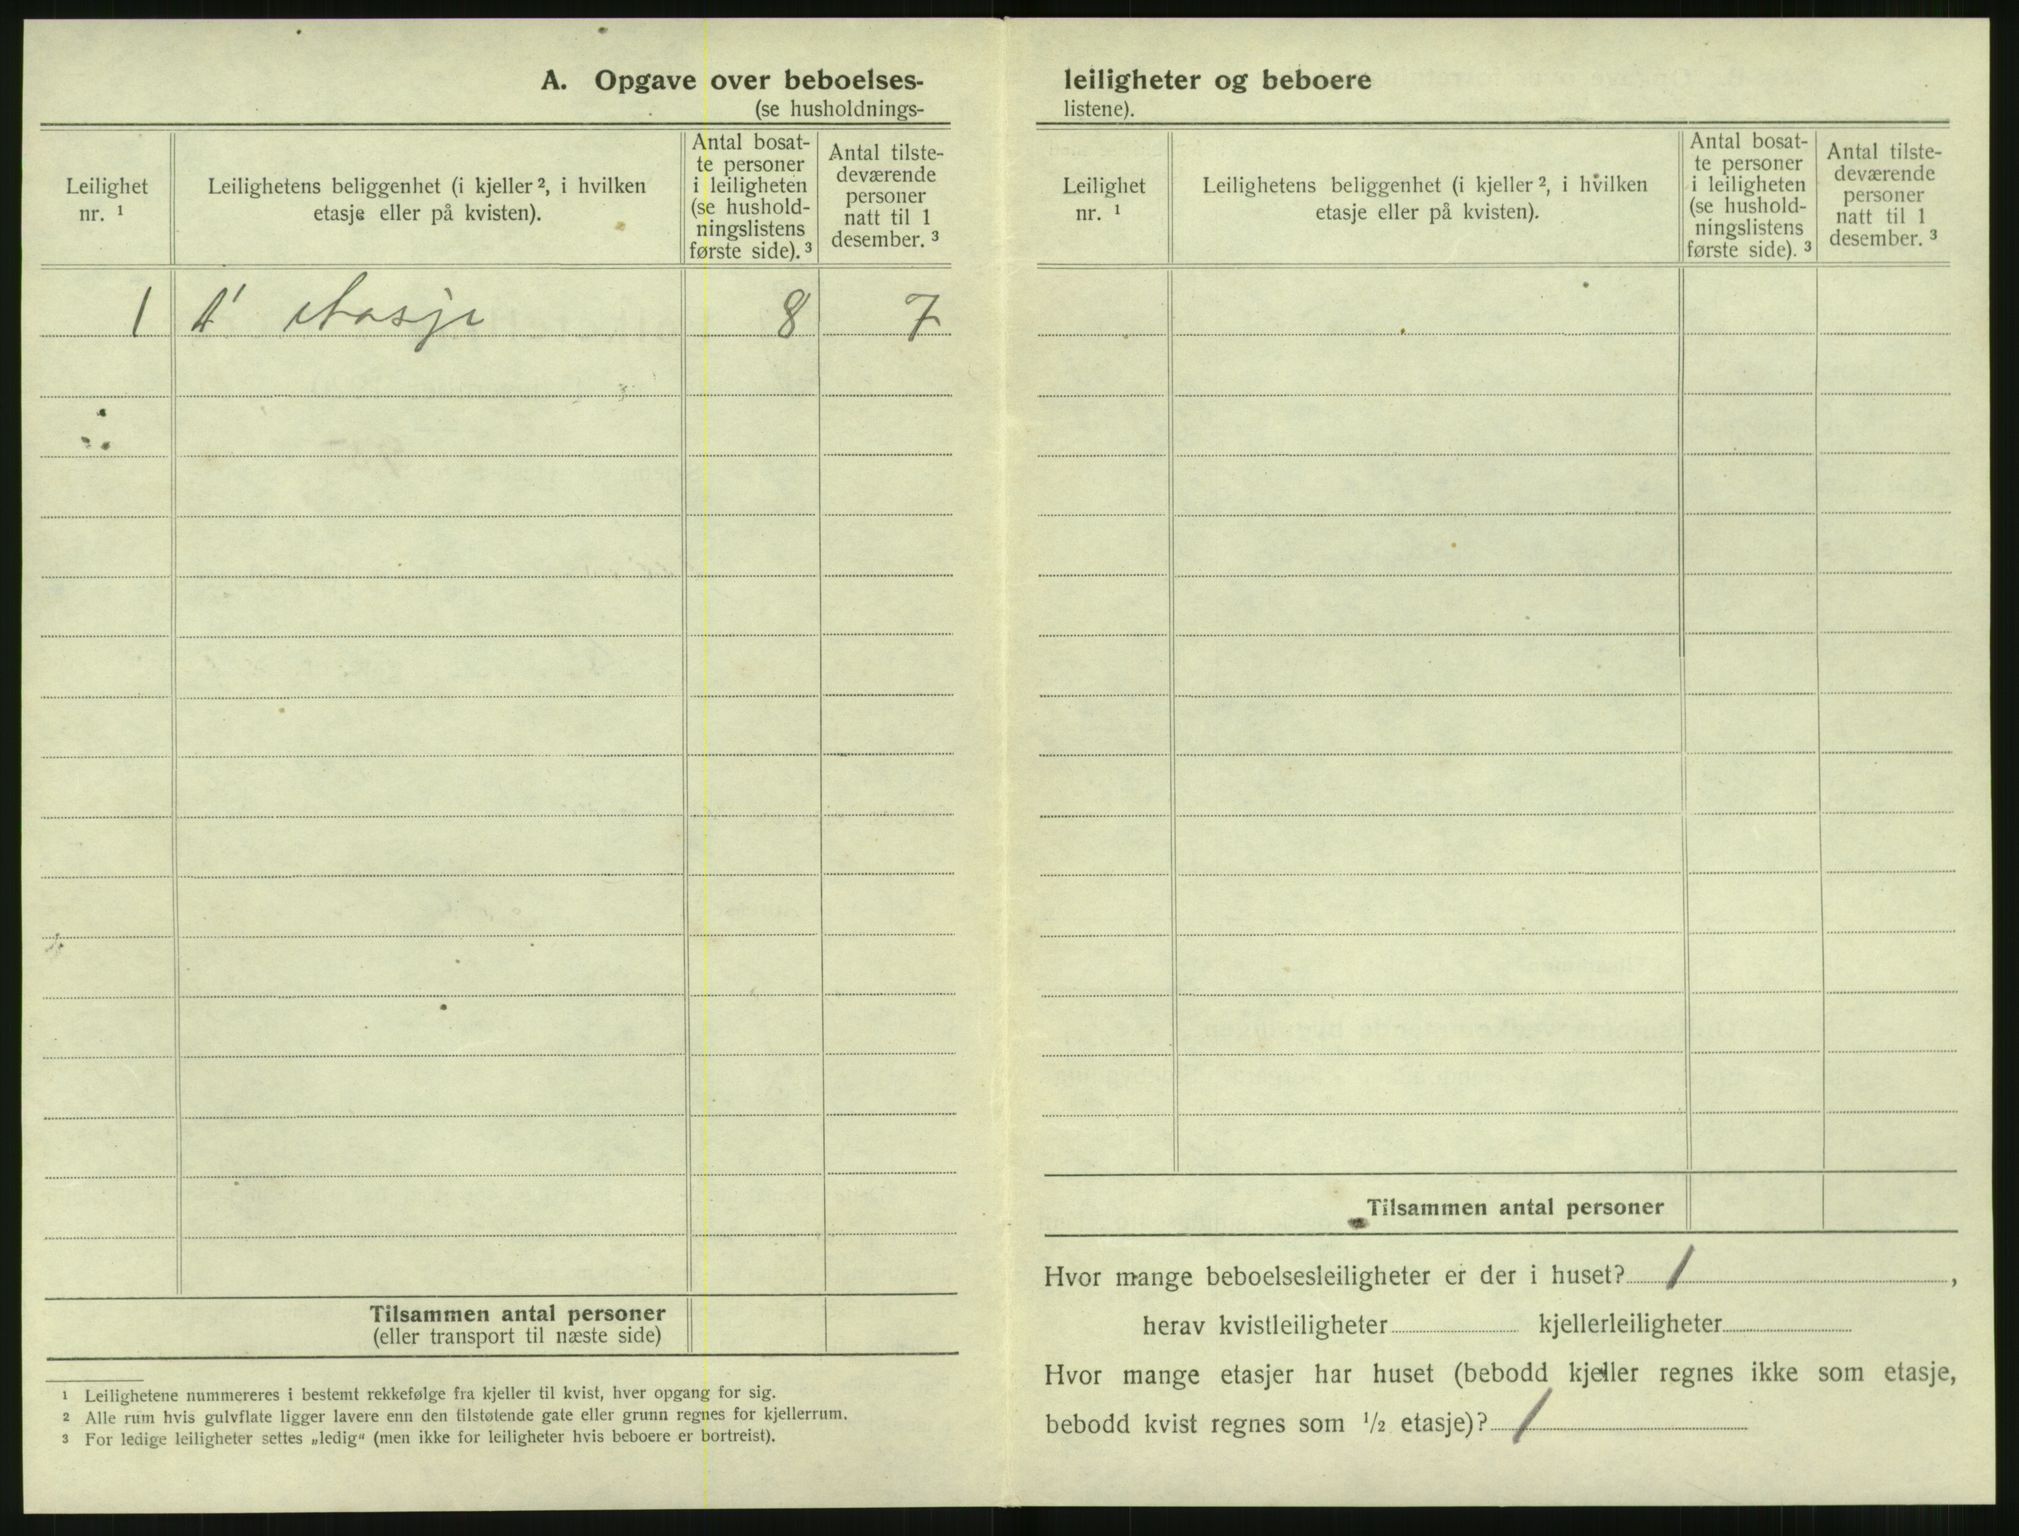 A. Opgave over beboelses-
(se husholdnings-
Leilighet
nr. 1
Leilighetens beliggenhet (i kjeller 2, i hvilken
etasje eller på kvisten).
Antal bosat-
te personer
i leiligheten
(se hushold-
ningslistens
første side). 3
Antal tilste-
deværende
personer
natt til 1
desember. 3
1 1' etasje 8 7
Tilsammen antal personer
(eller transport til næste side)
1 Leilighetene nummereres i bestemt rekkefølge fra kjeller til kvist, hver opgang for sig.
2 Alle rum hvis gulvflate ligger lavere enn den tilstøtende gate eller grunn regnes for kjellerrum.
3 For ledige leiligheter settes „ledig“ (men ikke for leiligheter hvis beboere er bortreist).
leiligheter og beboere
listene).
Leilighet
nr. 1
Leilighetens beliggenhet (i kjeller 2, i hvilken
etasje eller på kvisten).
Antal bosat-
te personer
i leiligheten
(se hushold-
ningslistens
første side). 3
Antal tilste-
deværende
personer
natt til 1
desember. 3
Tilsammen antal personer
Hvor mange beboelsesleiligheter er der i huset? 1,
herav kvistleiligheter kjellerleiligheter
Hvor mange etasjer har huset (bebodd kjeller regnes ikke som etasje,
bebodd kvist regnes som 1/2 etasje)? 1